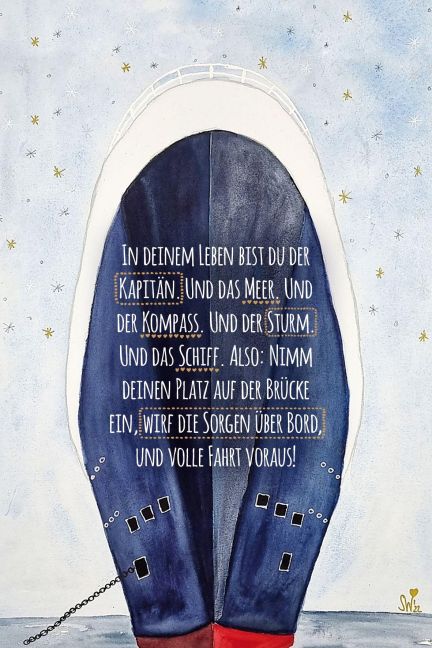 In deinem Leben bist du der
Kapitän. Und das Meer. Und
der Kompass. Und der Sturm.
Und das Schiff. Also: Nimm
deinen Platz auf der Brücke
ein, wirf die Sorgen über Bord,
und volle Fahrt voraus!
SW'22